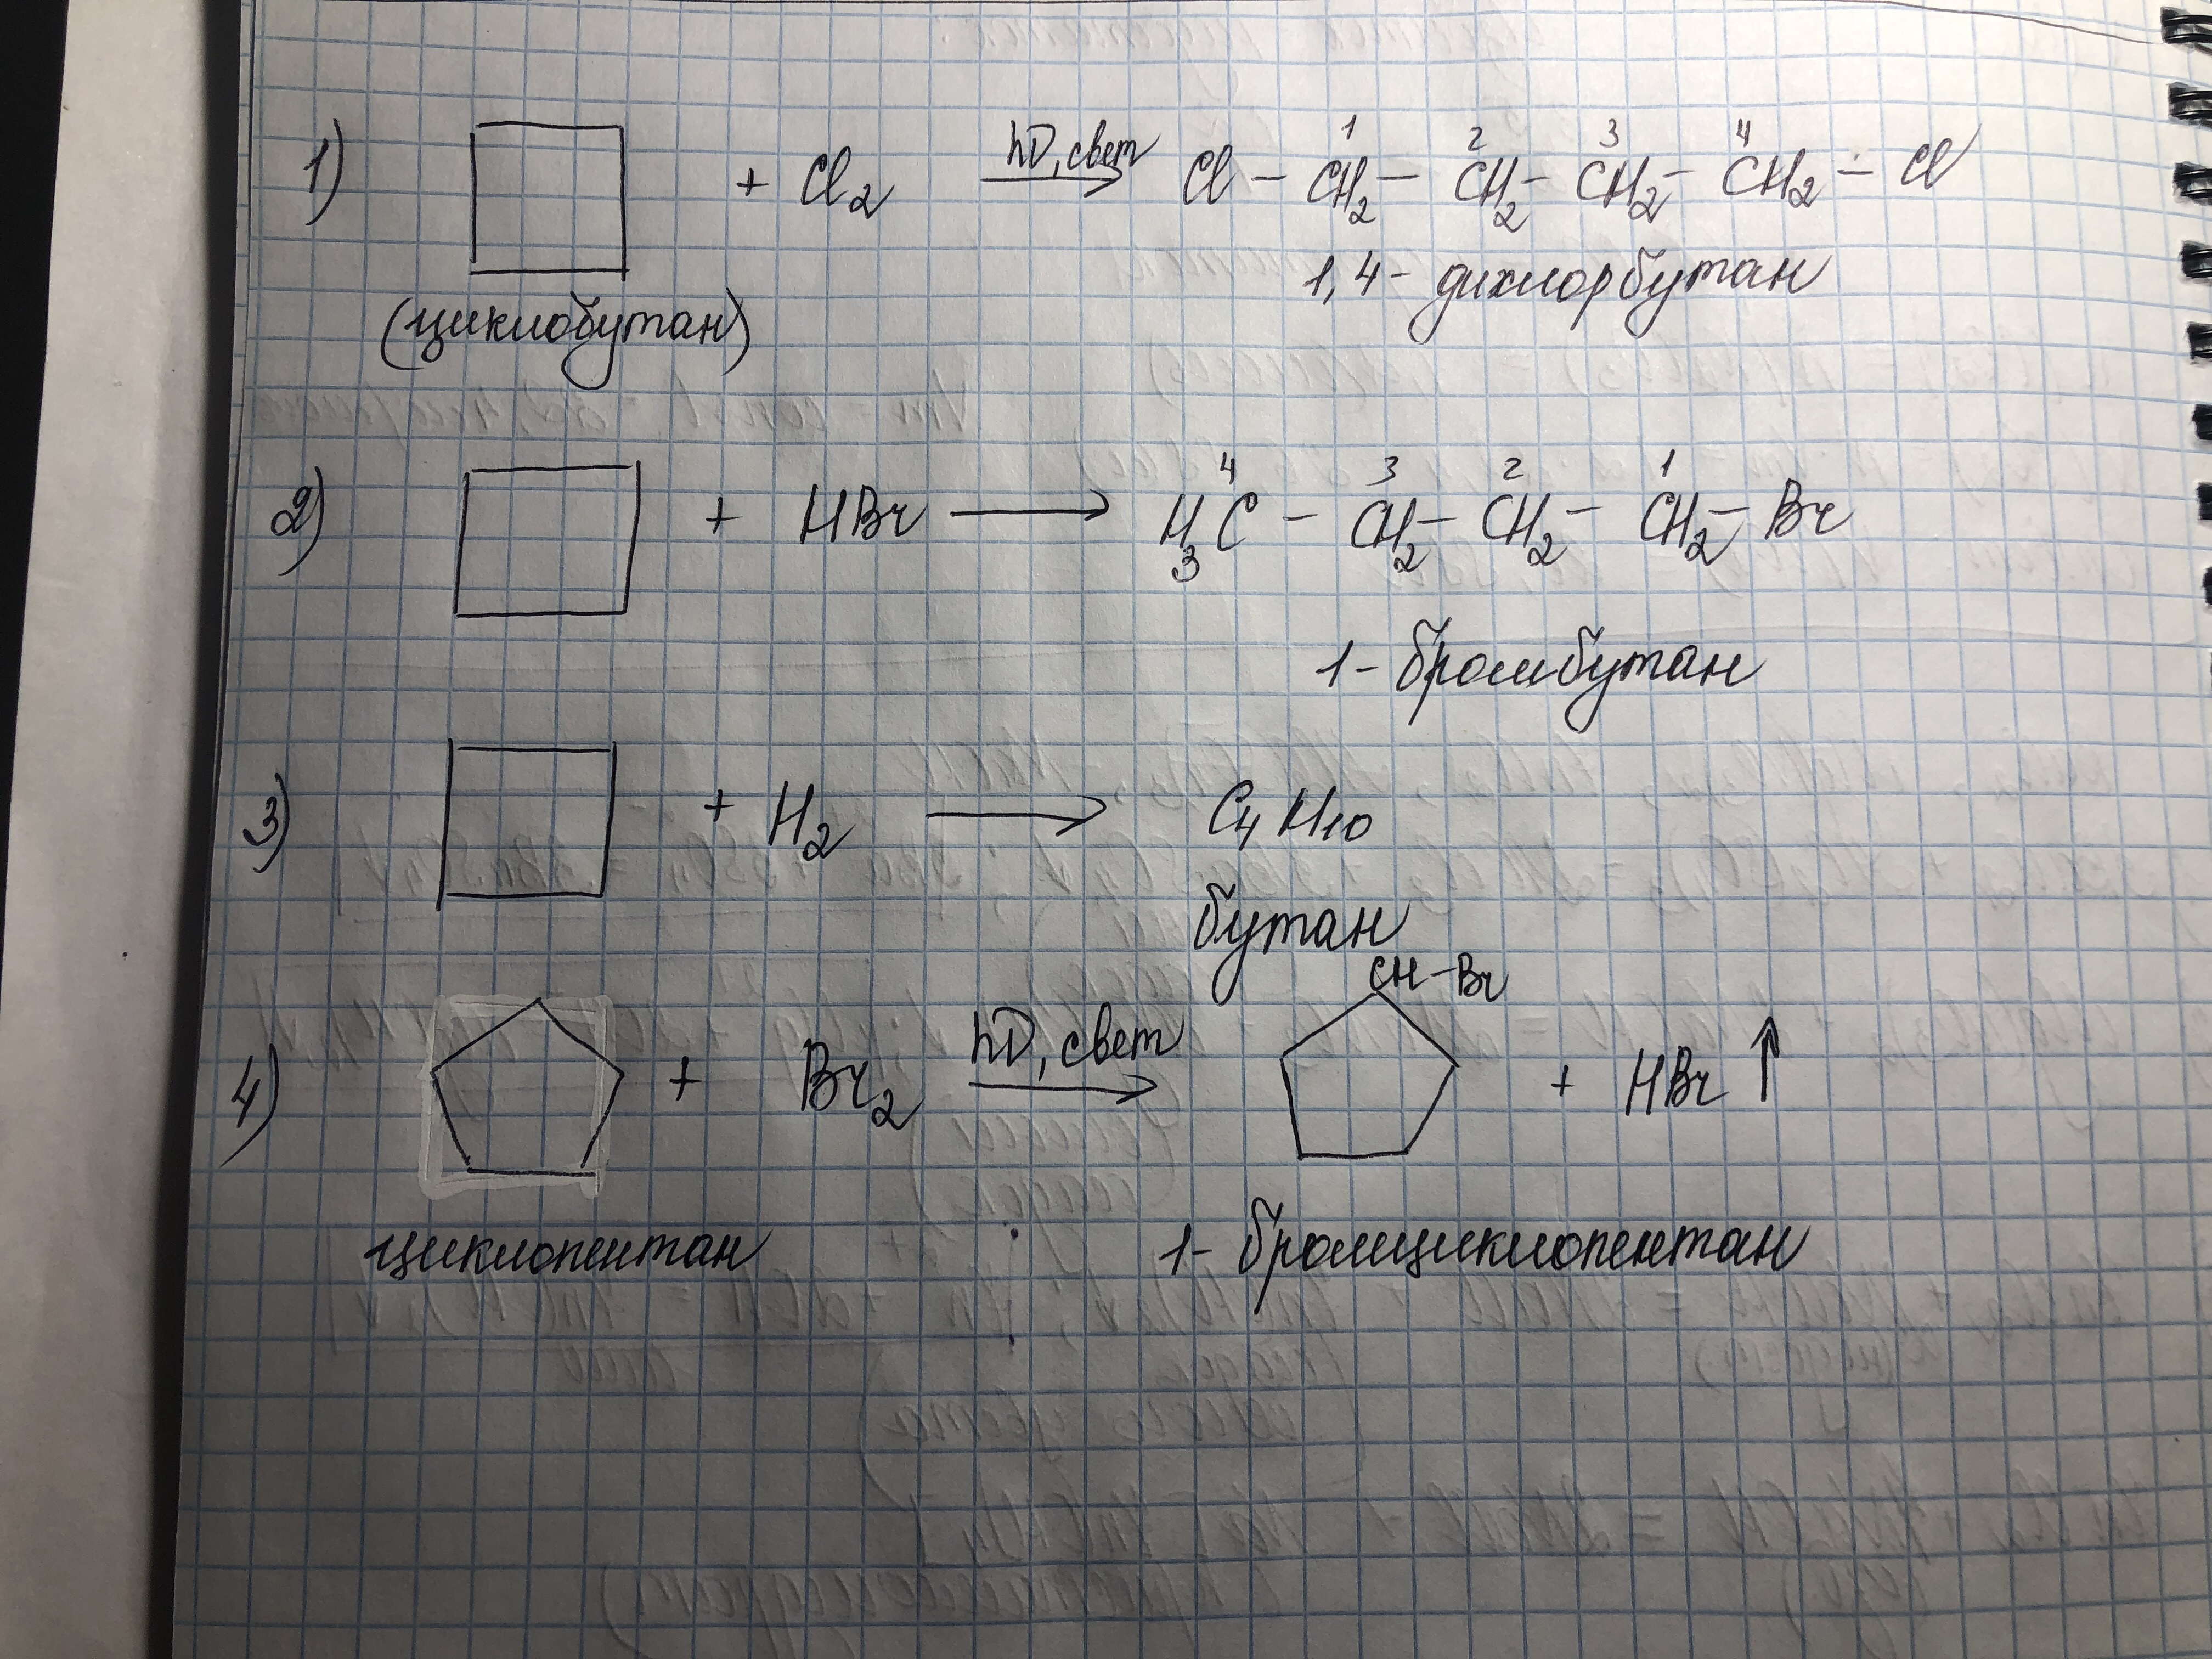 1) + Cl₂ hν, свет → Cl – CH₂ – CH₂ – CH₂ – CH₂ – Cl
1 2 3 4
(циклобутан) 1,4 - дихлорбутан
2) + HBr → H₃C – CH₂ – CH₂ – CH₂ – Br
4 3 2 1
1 - бромбутан
3) + H₂ → C₄H₁₀
бутан
CH – Br
4) + Br₂ hν, свет → + HBr ↑
циклопентан 1 - бромциклопентан